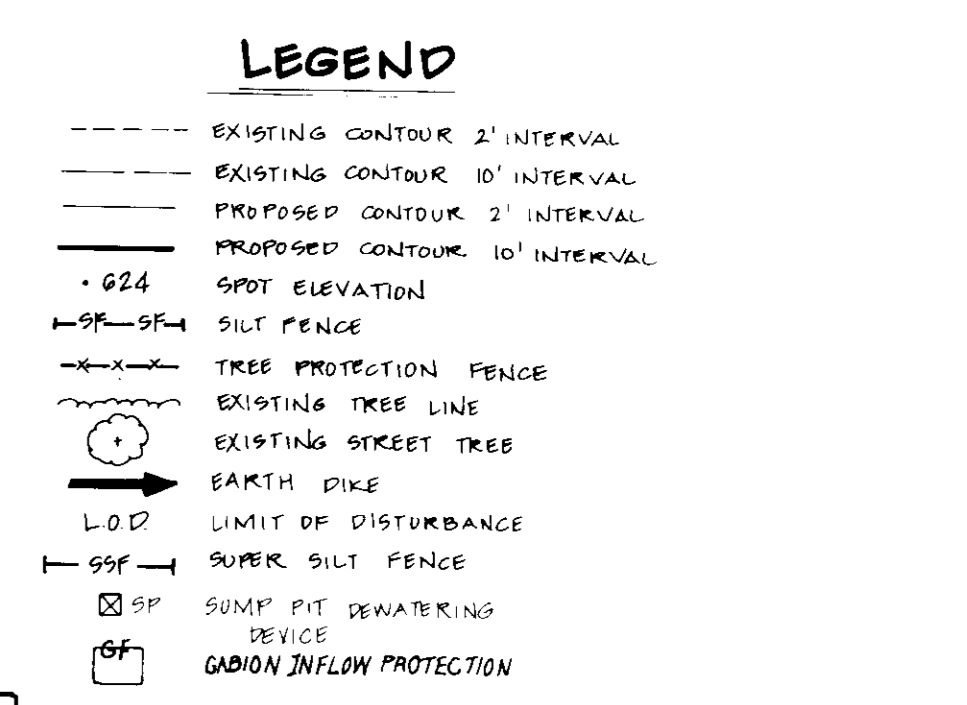 LEGEND
EXISTING CONTOUR 2' INTERVAL
EXISTING CONTOUR 10' INTERVAL
PROPOSED CONTOUR 2' INTERVAL
PROPOSED CONTOUR 10' INTERVAL
. 624 SPOT ELEVATION
SF SF SILT FENCE
x x x TREE PROTECTION FENCE
EXISTING TREE LINE
+ EXISTING STREET TREE
EARTH DIKE
L.O.D. LIMIT OF DISTURBANCE
SSF SUPER SILT FENCE
SP SUMP PIT DEWATERING
DEVICE
GF GABION INFLOW PROTECTION